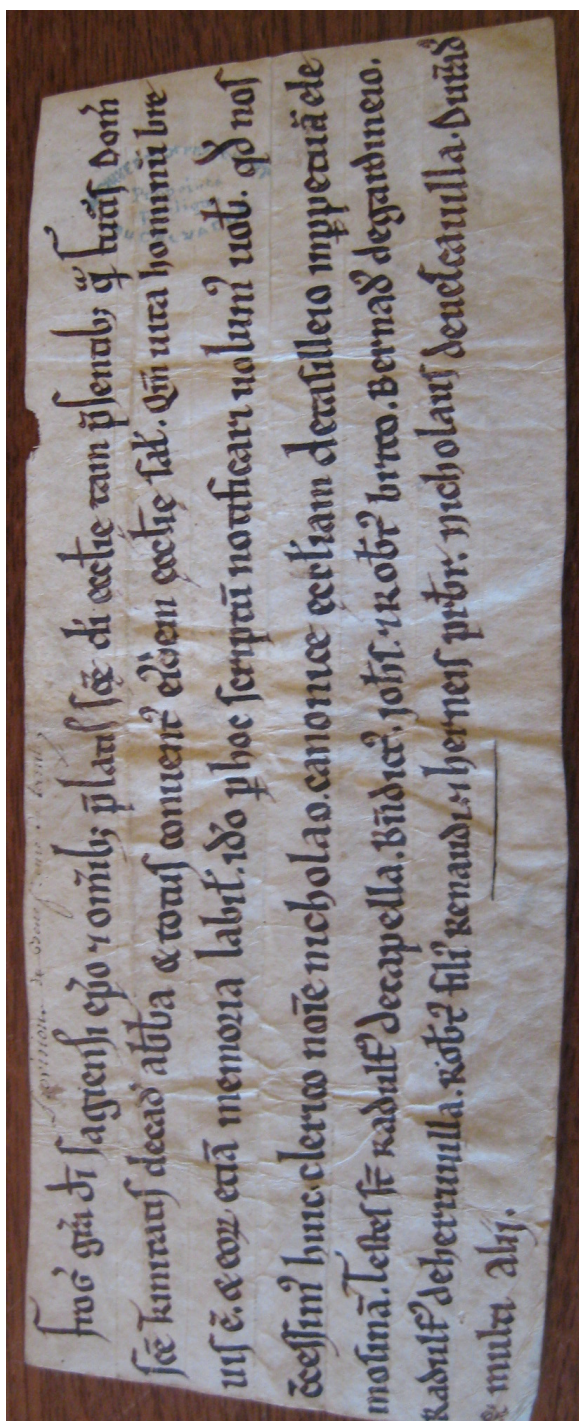 frog̃ gr̃a di sagiensi ep̃o ⁊ omib; p̃latis sc̃e di eccl̃ie tam p̃sentib; q̃ futuris dom̃
sc̃e t̾initatis decad̃ abb̃a & totus conuent᷒ eid̃em eccl̃ie sal̃. Qm̃ uita hominũ bre
uis ẽ. & eoꝝ etiã memoria labit̃. id̾o p hoc scriptũ notificari uolum᷒ uob̃. qd̾ nos
c̃cessim᷒ hunc. clerico no͞ie nicholao. canonice eccl̃iam detasilleio inppetuã ele
mosinã. Testes st̃ Radulf᷒ decapella. Bn̾dict᷒. joh̾s. ⁊ Rob̾t᷒ brito. Bernad᷒ degardineio.
Radulf᷒ deherunuilla. Rob̾t᷒ fili᷒ Renaudi. ⁊ herneis prb̾r. Nicholaus deuescauilla. Durãd᷒
& multi alij.